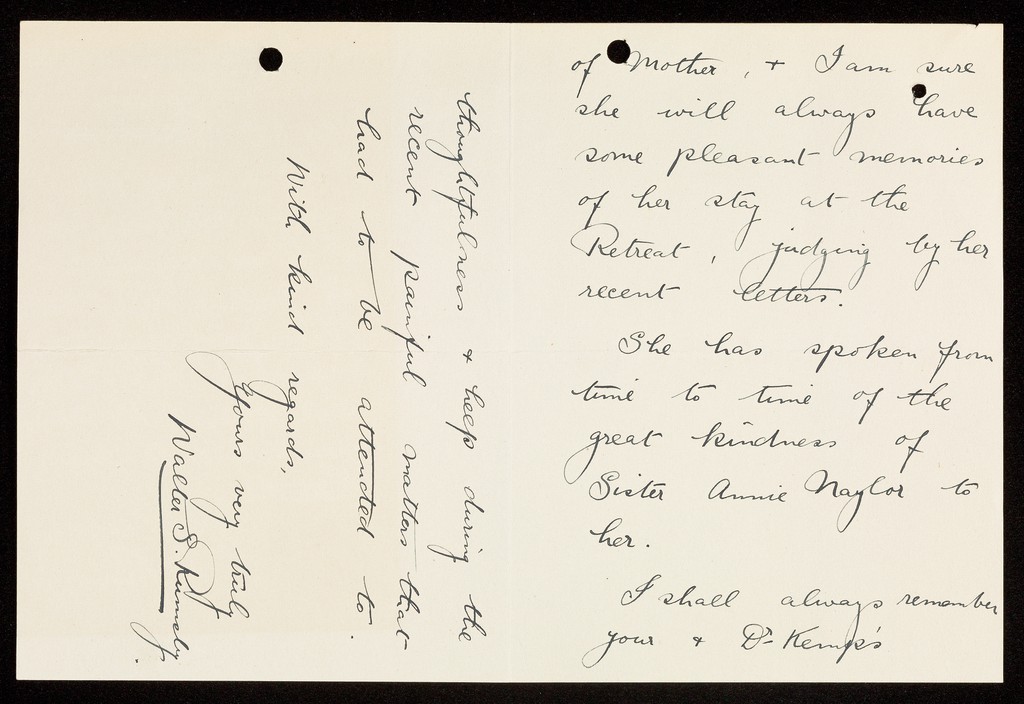 of Mother, + I am sure
she will always have
some pleasant memories
of her stay at the
Retreat, judging by her
recent letters.
She has spoken from
time to time of the
great kindness of
Sister Annie Naylor to
her.
I shall always remember
your + Dr Kemp's
thoughtfulness + help during the
recent painful matters that
had to be attended to.
With kind regards,
Yours very truly
Walter S. Rumsby.